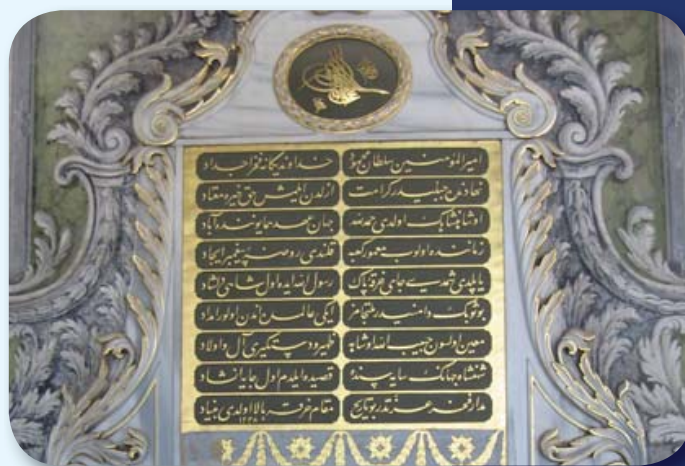 امیرالمؤمنین سلطان محمود خداوند یگانه فخر اجداد
نهادنده جبلیدر کرامت ازلدن ایلمش حق خیره معتاد
او شاهنشاهک اولدی حمد لله جهان عهد همایوننده آباد
زماننده اولوب معمور کعبه قلندی روضه پیغمبر ایجاد
یاپلدی شمدی جای خرقه پاک رسول الله ایده اول شاهی دلشاد
بو ثوبک دامنیدر ملتجامز ایکی عالمده اندن اولور امداد
معین اولسون حبیب الله او شاهه ظهیر و دستگیری آل و اولاد
شهنشاه جهانک سایه سنده قصیده ایلدم اول جایه انشاد
مدار فخر عزتدر بو تاریخ مقام خرقه بالا اولدی بنیاد